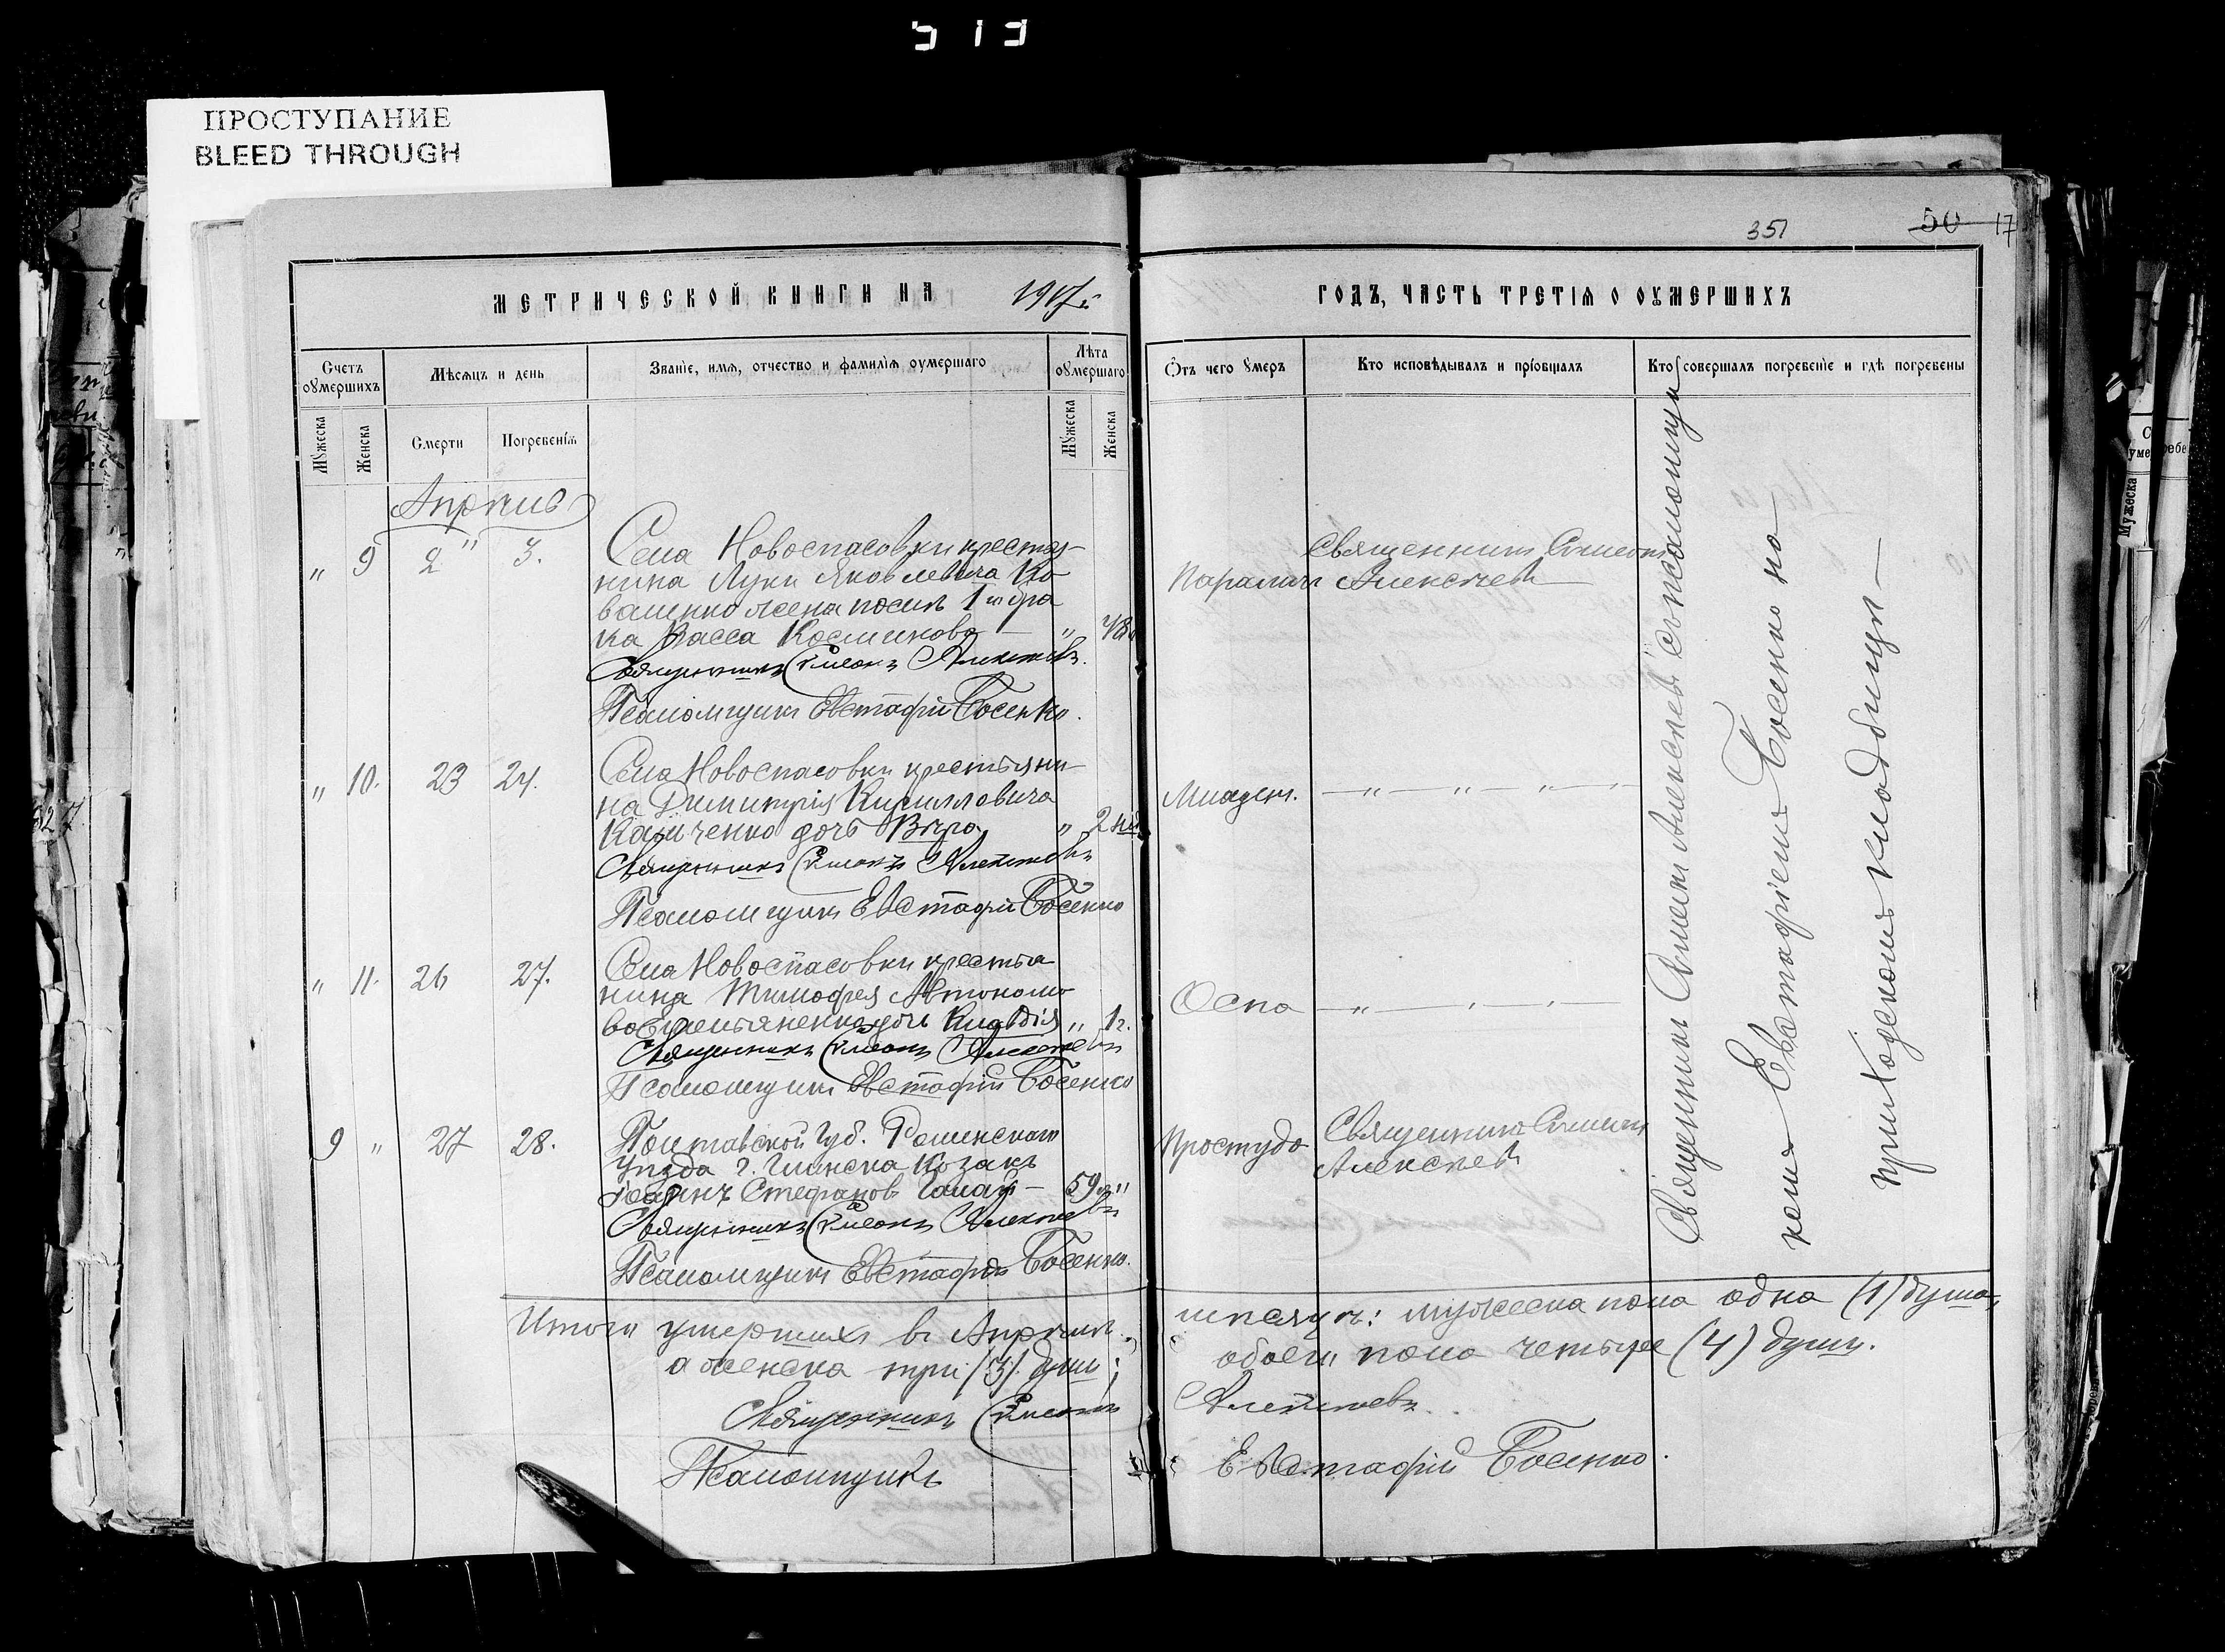 513
ПРОСТУПАНИЕ
BLEED THROUGH
351
50 17
МЕТРИЧЕСКОЙ КНИГИ НА 1917 г.
ГОДЪ, ЧАСТЬ ТРЕТІЯ О ОУМЕРШИХЪ
Счетъ оумершихъ
Мѣсяцъ и день
Званіе, имя, отчество и фамилія оумершаго
Лѣта оумершаго
Отъ чего умеръ
Кто исповѣдывалъ и пріобщалъ
Кто совершалъ погребеніе и гдѣ погребены
Мужеска
Женска
Смерти
Погребенія
Мужеска
Женска
Апрѣль
" 9 2 " 3. Села Новоспасовки крестья-
нина Луки Яковлевича Ко-
валенко жена послѣ 1го бра
ка Васса Косминова "
Священникъ Симеонъ Алексѣевъ.
Псаломщикъ Евстафій Босенко.
Параличъ
Священникъ Симеонъ
Алексѣевъ
" 10. 23 24. Села Новоспасовки крестьяни-
на Димитрія Кирилловича
дочь Вѣра " 2 нед
Священникъ Симеонъ Алексѣевъ
Псаломщикъ Евстафій Босенко
Младен. — " — " — " —
" 11. 26 27. Села Новоспасовки крестья
нина Тимофея Автономо
ва Емельяненко дочь Клавдія " 1 г.
Священникъ Симеонъ Алексѣевъ
Псаломщикъ Евстафій Босенко
Оспа — " — " — " —
9 " 27 28. Полтавской Губ. Роменскаго
Уѣзда г. Глинска Козакъ
Іоаннъ Стефановъ — 59 "
Священникъ Симеонъ Алексѣевъ
Псаломщикъ Евстафій Босенко.
Простуда
Священникъ Симеонъ
Алексѣевъ
Священникъ Симеонъ Алексѣевъ съ псаломщи
комъ Евстафіемъ Босенко на
приходскомъ кладбищѣ —
Итого умершихъ въ Апрѣлѣ мѣсяцѣ: мужеска пола одна (1) душа,
а женска три (3) души; обоего пола четыре (4) души.
Священникъ Симеонъ Алексѣевъ.
Псаломщикъ Евстафій Босенко.